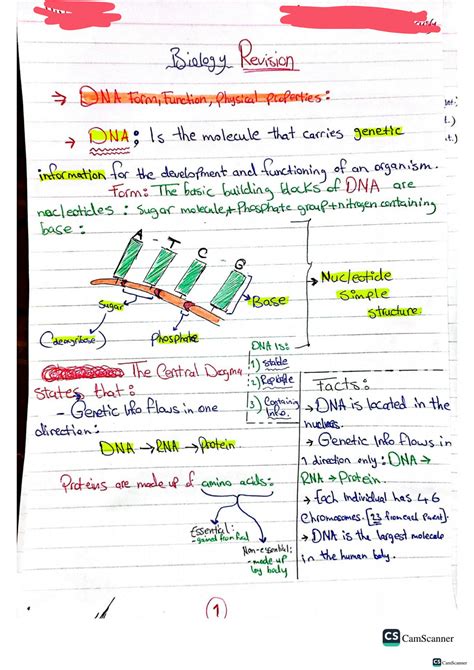 Biology Revision
→ DNA Form, Function, Physical properties:
→ DNA; Is the molecule that carries genetic
information for the development and functioning of an organism.
Form: The basic building blocks of DNA are
nucleotides: Sugar molecule + Phosphate group + nitrogen containing
base:
A - T C - G
Sugar
Base
(deoxyribose)
Phosphate
→ Nucleotide
simple
structure.
DNA is:
1) stable
2)
3) Containing
Info.
The Central Dogma
states that:
- Genetic Info flows in one
direction:
DNA → RNA → Protein.
Proteins are made up of amino acids:
Essential:
- gained from food
Non-essential:
- made up
by body
Facts:
→ DNA is located in the
nucleus.
→ Genetic Info flows in
1 direction only: DNA →
RNA → Protein.
→ Each Individual has 46
Chromosomes. [23 from each Parent].
→ DNA is the largest molecule
in the human body.
(1)
CS CamScanner
CS CamScanner